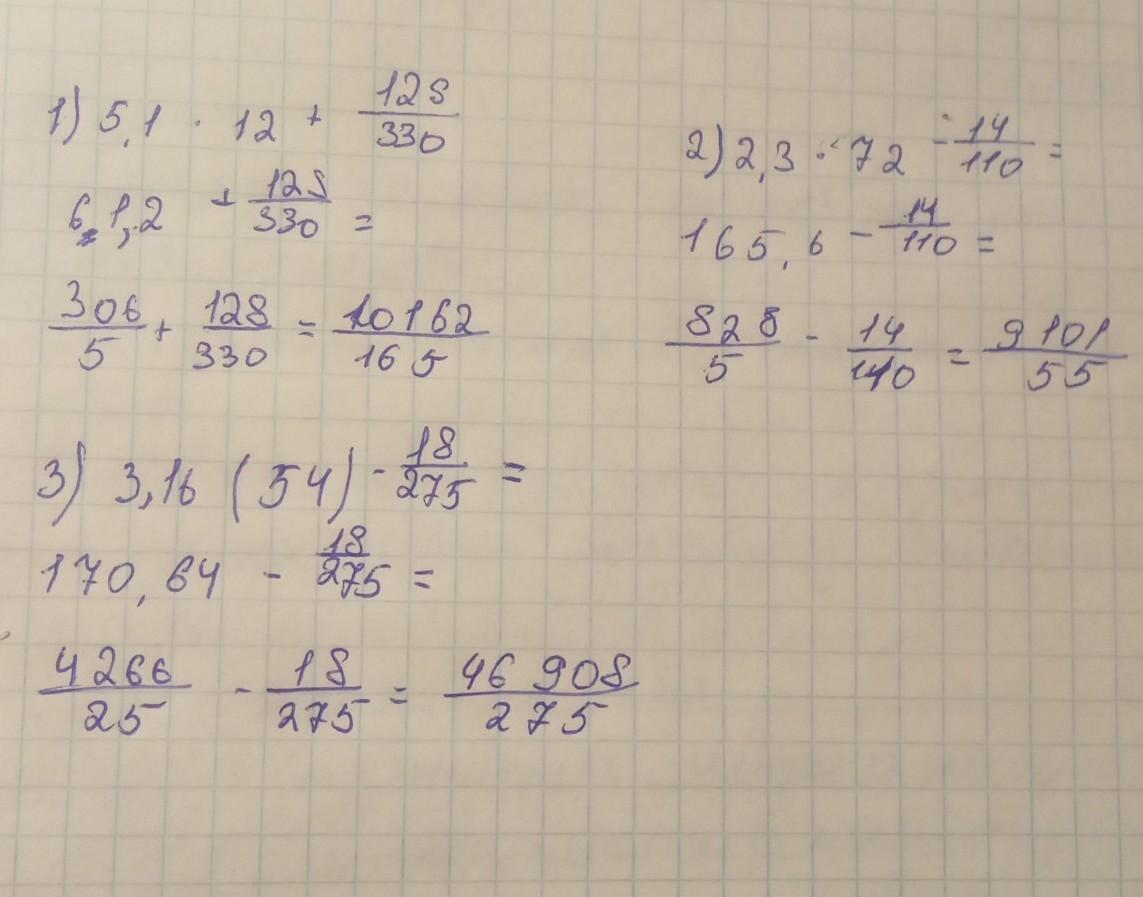 1) 5,1 · 12 + 128/330
61,2 + 128/330 =
306/5 + 128/330 = 10162/165
2) 2,3 · 72 - 14/110 =
165,6 - 14/110 =
828/5 - 14/110 = 9101/55
3) 3,16 (54) - 18/275 =
170,64 - 18/275 =
4266/25 - 18/275 = 46908/275